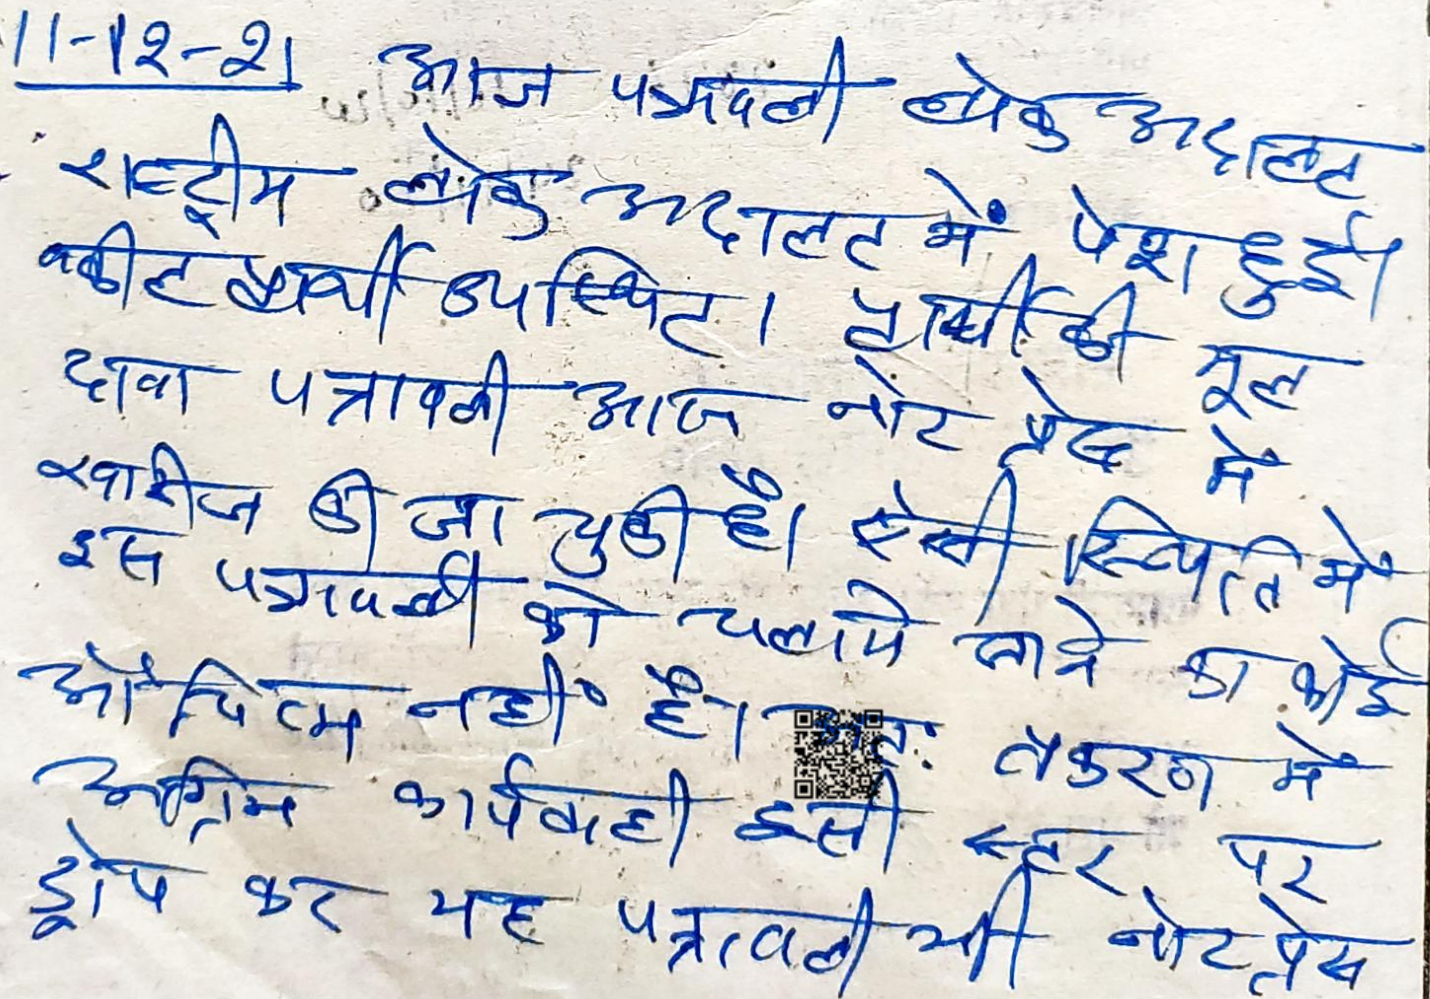 11-12-21 आज पत्रावली लोक अदालत
राष्ट्रीय लोक अदालत में पेश हुई।
वकील प्रार्थी उपस्थित। प्रार्थी की मूल
दावा पत्रावली आज नोट प्रेस में
खारीज की जा चुकी है। ऐसी स्थिति में
इस पत्रावली को चलाये जाने का कोई
औचित्य नहीं है। अतः प्रकरण में
अग्रिम कार्यवाही इसी स्तर पर
ड्रोप कर यह पत्रावली भी नोट प्रेस